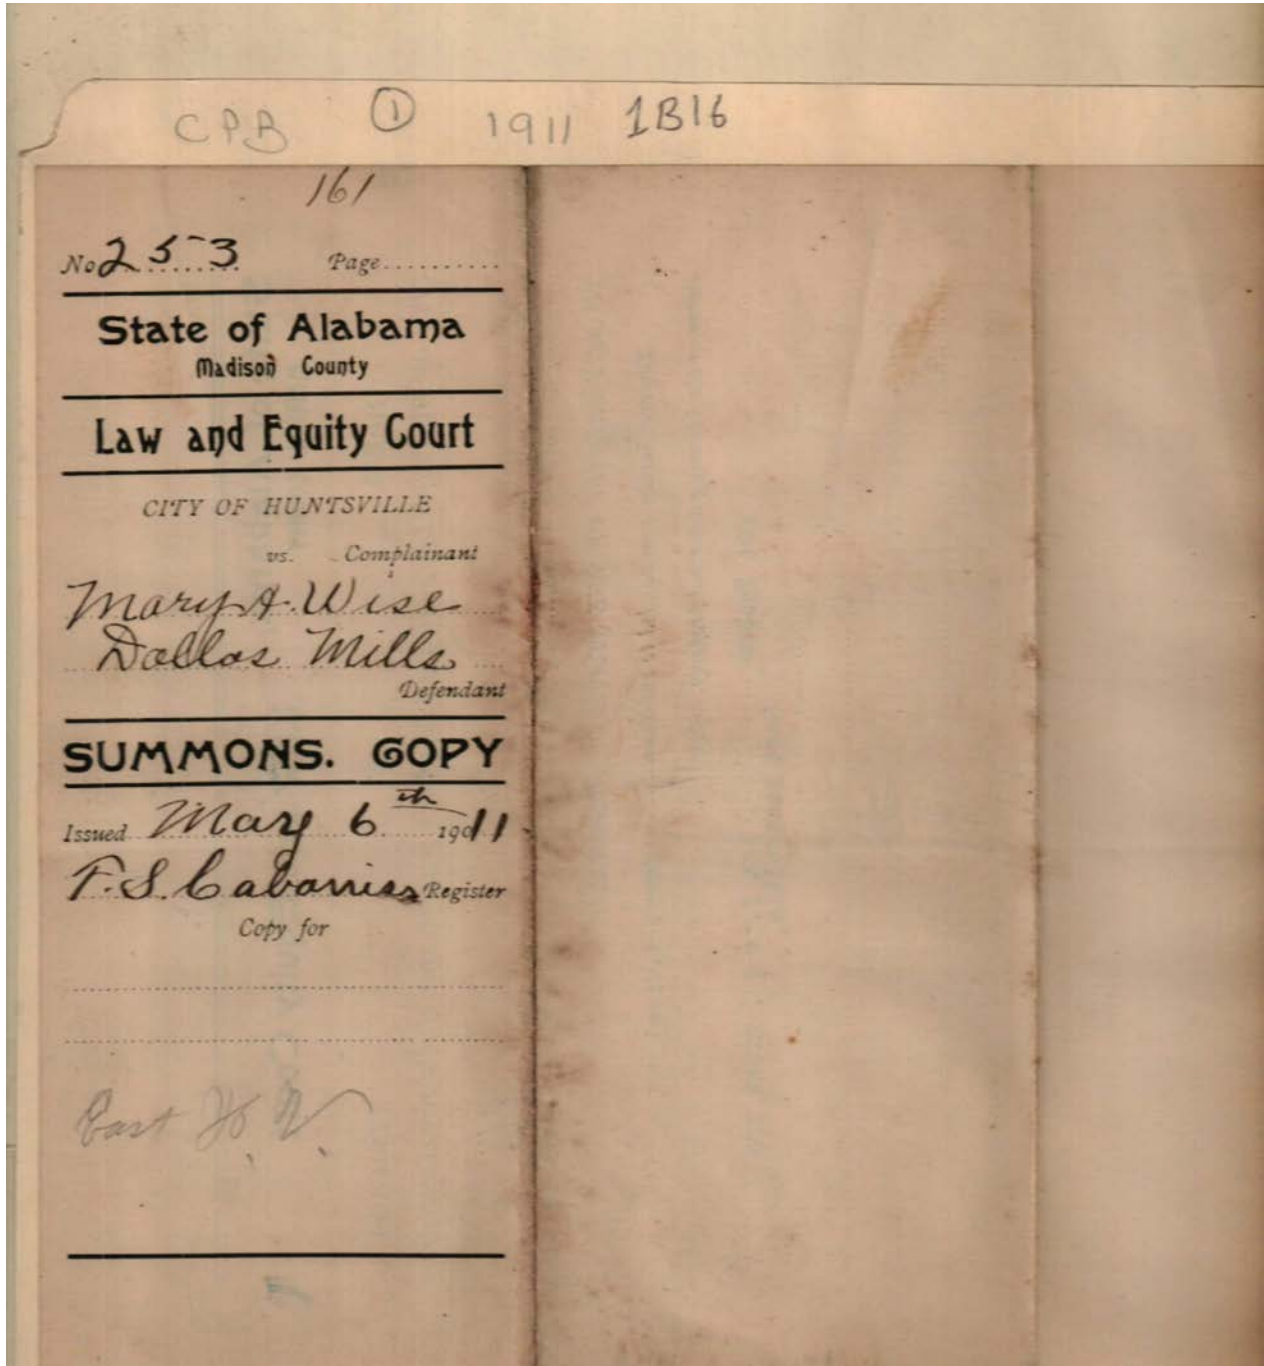 CPB ① 1911 1B16
161
No 253 Page..........
State of Alabama
Madison County
Law and Equity Court
CITY OF HUNTSVILLE
vs. Complainant
Mary A. Wise
Dallas Mills
Defendant
SUMMONS. COPY
Issued May 6th 19011
F. S. Cabaniss Register
Copy for
East